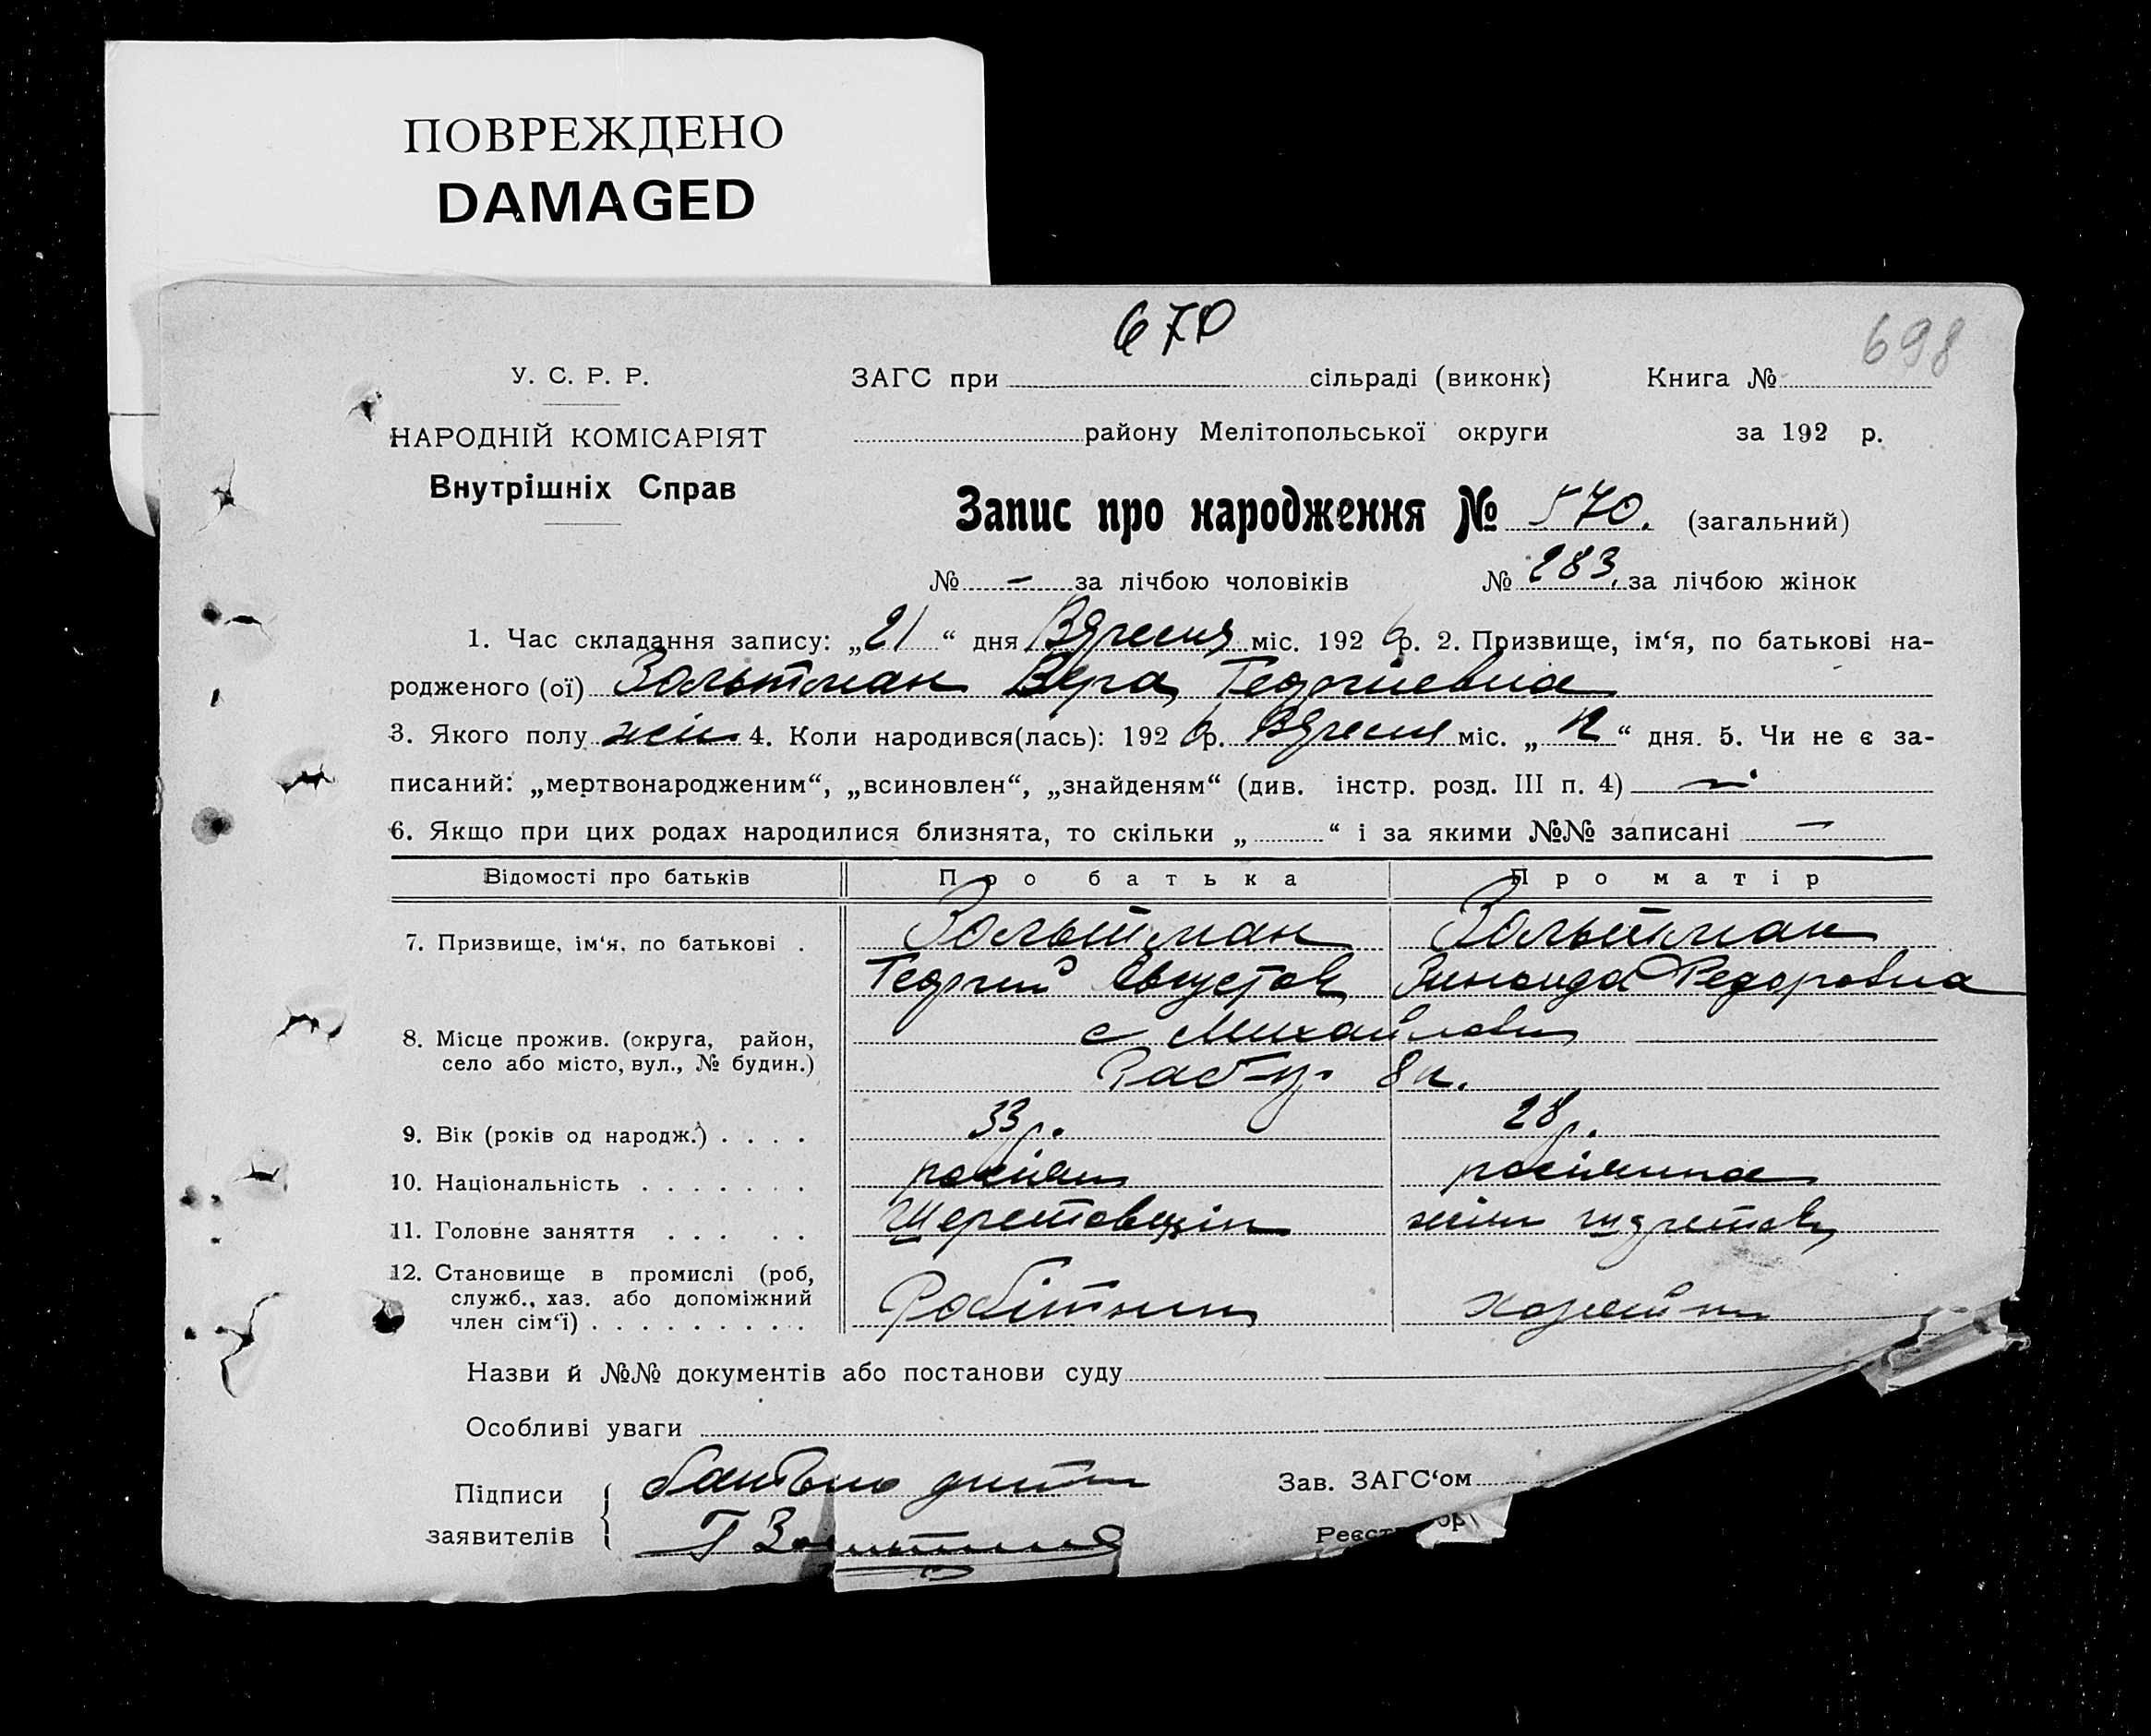 ПОВРЕЖДЕНО
DAMAGED
670
698
У. С. Р. Р.
ЗАГС при сільраді (виконк) Книга №
НАРОДНІЙ КОМІСАРІЯТ
району Мелітопольської округи за 192 р.
Внутрішніх Справ
Запис про народження № 570. (загальний)
№ — за лічбою чоловіків № 283. за лічбою жінок
1. Час складання запису: „21“ дня Вересня міс. 1926 р. 2. Призвище, ім‘я, по батькові на-
родженого (ої) Зольтман Вера Георгіевна
3. Якого полу жін 4. Коли народився(лась): 1926 р. Вересня міс. „12“ дня. 5. Чи не є за-
писаний: „мертвонародженим“, „всиновлен“, „знайденям“ (див. інстр. розд. III п. 4) —
6. Якщо при цих родах народилися близнята, то скільки „ “ і за якими №№ записані —
Відомості про батьків Про батька Про матір
7. Призвище, ім‘я, по батькові . Зольтман Зольтман
Георгий Августов Зинаида Федоровна
8. Місце прожив. (округа, район, село або місто, вул., № будин.) с Михайловка
8
9. Вік (років од народж.) . . . . 33 р. 28 р.
10. Національність . . . . . . . росіянин росіянка
11. Головне заняття . . . . . Шеретовщик жін шеретов
12. Становище в промислі (роб, служб., хаз. або допоміжний член сім‘ї) . . . . . . . . . Робітник хозяйка
Назви й №№ документів або постанови суду
Особливі уваги
Підписи заявителів батько дитини Зав. ЗАГС‘ом
Г Зольтман Реєстр ор